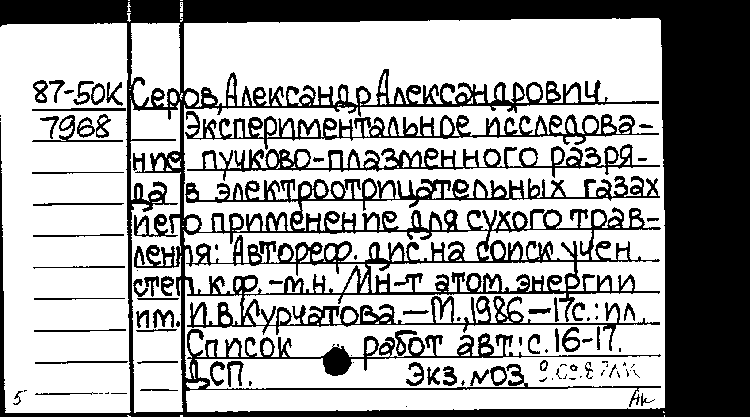 87-50К Серов, Александр Александрович.
7968 Экспериментальное исследова-
ние пучково-плазменного разря-
да в электроотрицательных газах
и его применение для сухого трав-
ления: Автореф. дис. на соиск. учен.
степ. к.ф.-м.н. /Ин-т атом. энергии
им. И.В.Курчатова.—М.,1986.—17с.:ил.
Список работ авт.: с.16-17.
ДСП. Экз.№03.
5 Ак